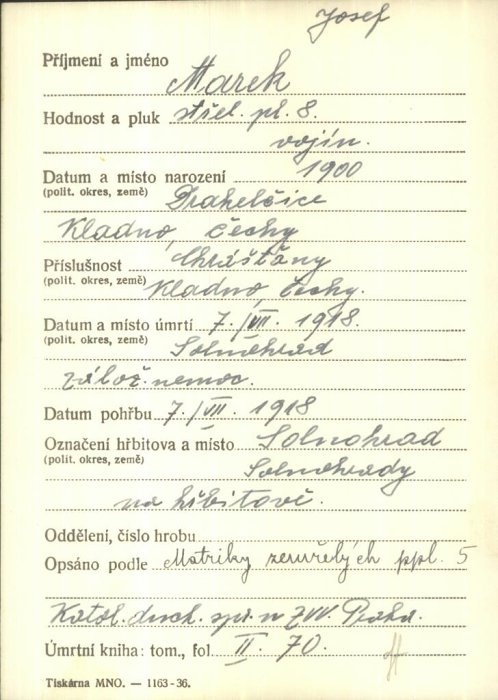 Josef
Příjmení a jméno Marek
Hodnost a pluk střel. pl. 8.
vojín.
Datum a místo narození 1900
(polit. okres, země) Drahelčice
Kladno, Čechy
Příslušnost Chrášťany
(polit. okres, země) Kladno, Čechy.
Datum a místo úmrtí 7./VII. 1918.
(polit. okres, země) Solnohrad
zálož. nemoc.
Datum pohřbu 7./VII. 1918
Označení hřbitova a místo Solnohrad
(polit. okres, země) Solnohrady
na hřbitově.
Oddělení, číslo hrobu
Opsáno podle Matriky zemřelých ppl. 5
Katol. duch. spr. u ZVV. Praha.
Úmrtní kniha: tom., fol. II. 70.
Tiskárna MNO. — 1163-36.